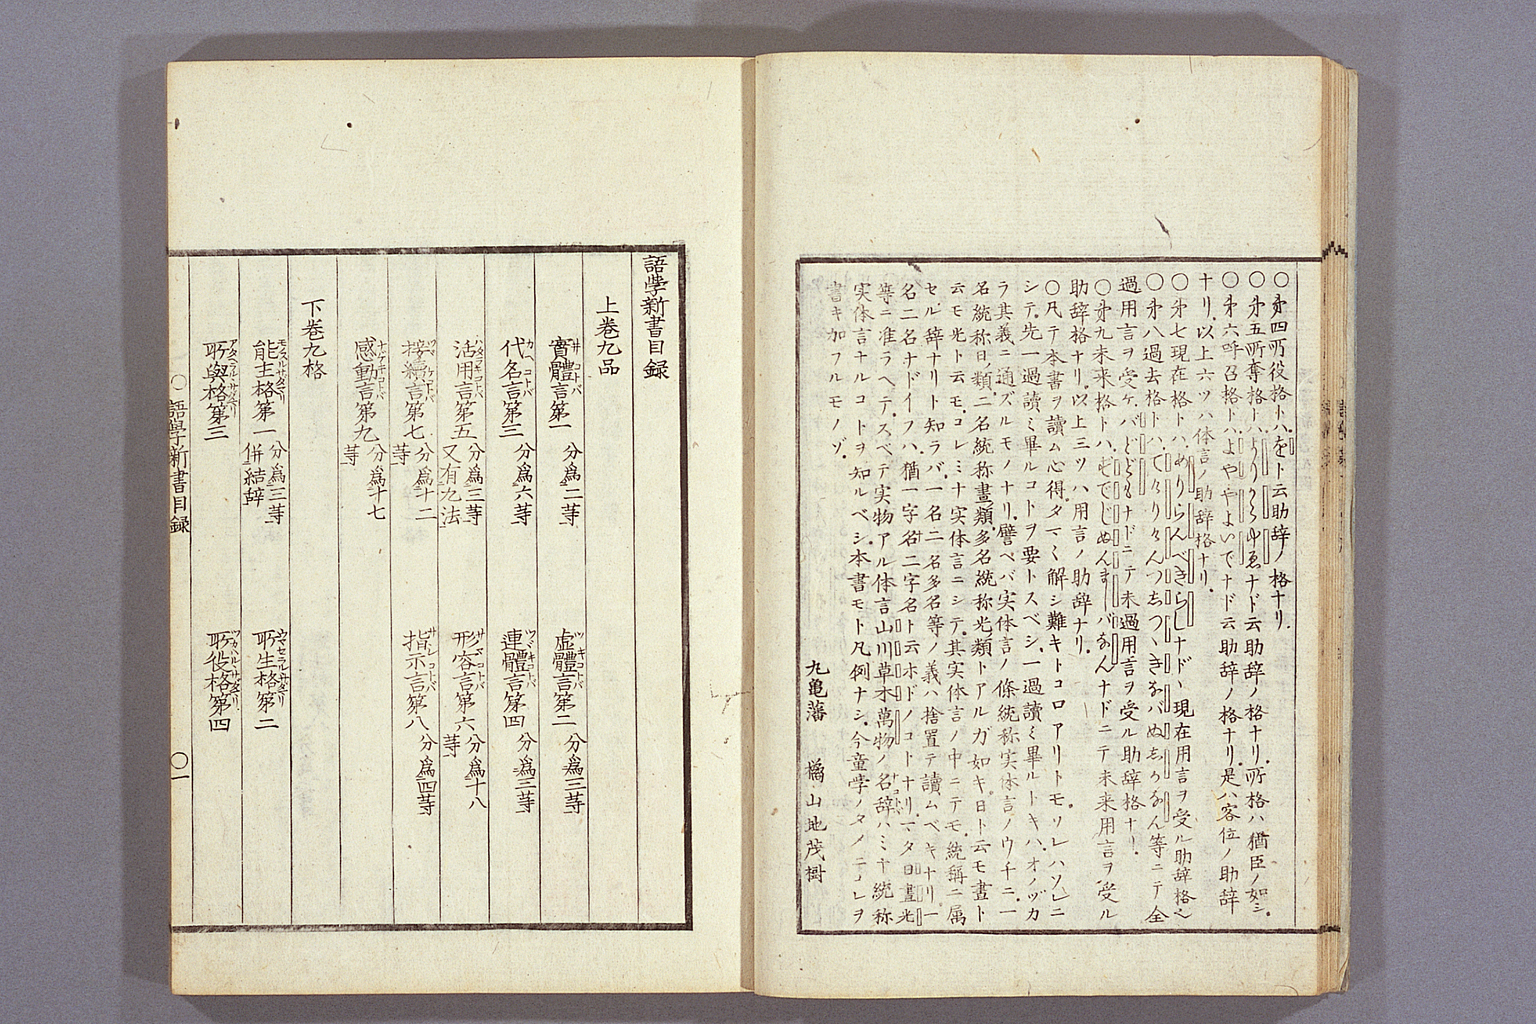 ○第四所役格トハをト云助辞ノ格ナリ
○第五所奪格トハよりからゆゑナド云助辞ノ格ナリ所格ハ猶臣ノ如シ
○第六呼召格トハよややよいでナド云助辞ノ格ナリ是ハ客位ノ助辞
ナリ以上六ツハ体言ノ助辞格ナリ
○第七現在格トハありらんべきらしナド現在用言ヲ受ル助辞格也
○第八過去格トハ等ニテ全
過用言ヲ受ケバどどもナドニテ未過用言ヲ受ル助辞格ナリ
○第九未来格トハナドニテ未来用言ヲ受ル
助辞格ナリ以上三ツハ用言ノ助辞ナリ
○凡テ本書ヲ読ム心得タヾマヽ解シ難キトコロアリトモソレハソレニ
シテ先一過讀ミ畢ルコトヲ要トスベシ一過讀ミ畢ルトキハオノヅカ
ラ其義ニ通ズルモノナリ譬ヘバ実体言ノ條統称実体言ノウチニ一
名統称日ノ類二名統称晝類多名統称光類トアルガ如キ日ト云モ晝ト
云モ光ト云モコレミナ実体言ニシテ其実体言ノ中ニテモ統稱ニ属
セル辞ナリト知ラバ一名二名多名等ノ義ハ捨置テ讀ムベキナリ一
名二名ナドイフハ猶一字名二字名ト云ホドノコトナリマタ日晝光
等ニ准ラヘテスベテ実物アル体言山川草木萬物ノ名辞ハミナ統称
実体言ナルコトヲ知ルベシ本書モト凡例ナシ今童学ノタメニコレヲ
書キ加フルモノゾ
九亀藩 橘山地茂樹
語學新書目録
上巻九品
實體言第一 分爲二等 虚體言第二 分爲三等
代名言第三 分爲六等 連體言第四 分爲三等
活用言第五 分爲三等又有九法 形容言第六 分爲十八等
接續言第七 分爲十二等 指示言第八 分爲四等
感動言第九 分爲十七等
下巻九格
能生格第一 分爲三等併結辞 所生格第二
所與格第三 所役格第四
○語學新書目録 ○一